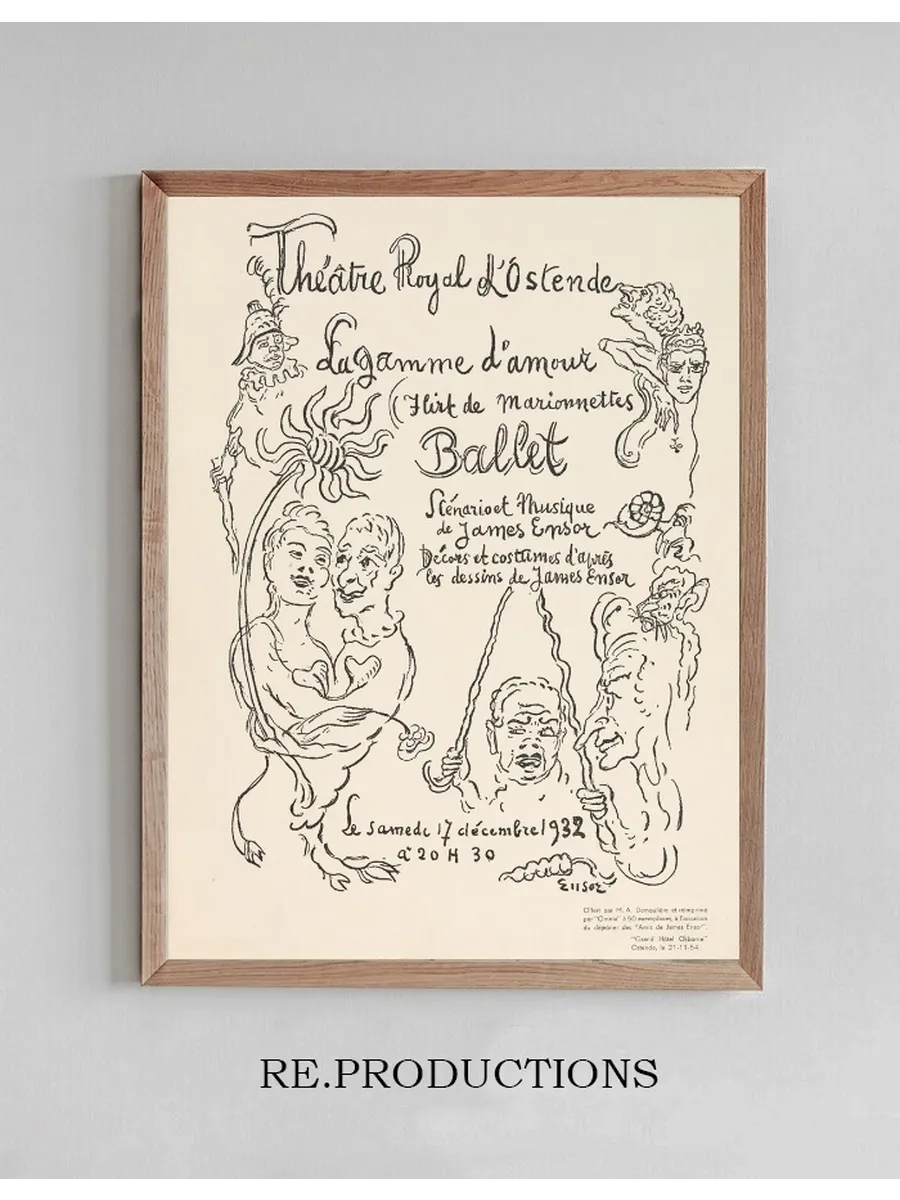 Théâtre Royal d'Ostende
La gamme d'amour
(Flirt de Marionnettes)
Ballet
Scénario et Musique
de James Ensor
Décors et costumes d'après
les dessins de James Ensor
Le samedi 17 décembre 1932
à 20 H 30
Ensor
Offert par M. A. Demeulière et réimprimé
par "Omnia" à 50 exemplaires, à l'occasion
du déjeuner des "Amis de James Ensor".
"Grand Hôtel Osborne"
Ostende, le 21-11-54.
RE.PRODUCTIONS